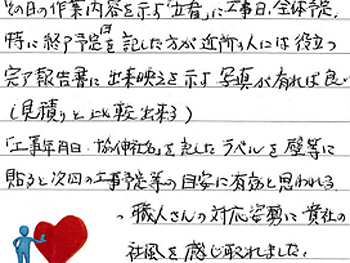 その日の作業内容を示す「立看」に工事日、全体予定、
特に終了予定日を記した方が近所の人には役立つ
完了報告書に出来映えを示す写真が有れば良い
(見積りと比較出来る)
「工事年月日・協伸社名」を記したラベルを壁等に
貼ると次回の工事予定等の目安に有効と思われる
。職人さんの対応姿勢に貴社の
社風を感じ取れました。